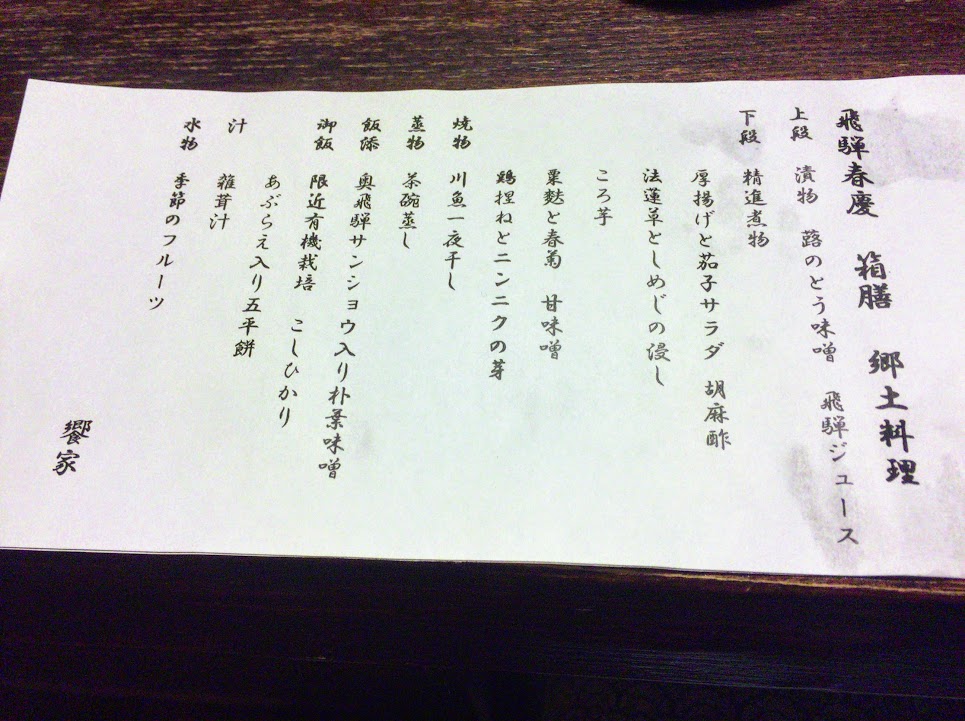 飛騨春慶　箱膳　郷土料理
上段　漬物　蕗のとう味噌　飛騨ジュース
下段　精進煮物
厚揚げと茄子サラダ　胡麻酢
法蓮草としめじの浸し
ころ芋
粟麩と春菊　甘味噌
鶏捏ねとニンニクの芽
焼物　川魚一夜干し
蒸物　茶碗蒸し
飯添　奥飛騨サンショウ入り朴葉味噌
御飯　限近有機栽培　こしひかり
あぶらえ入り五平餅
汁　雑茸汁
水物　季節のフルーツ
饗家